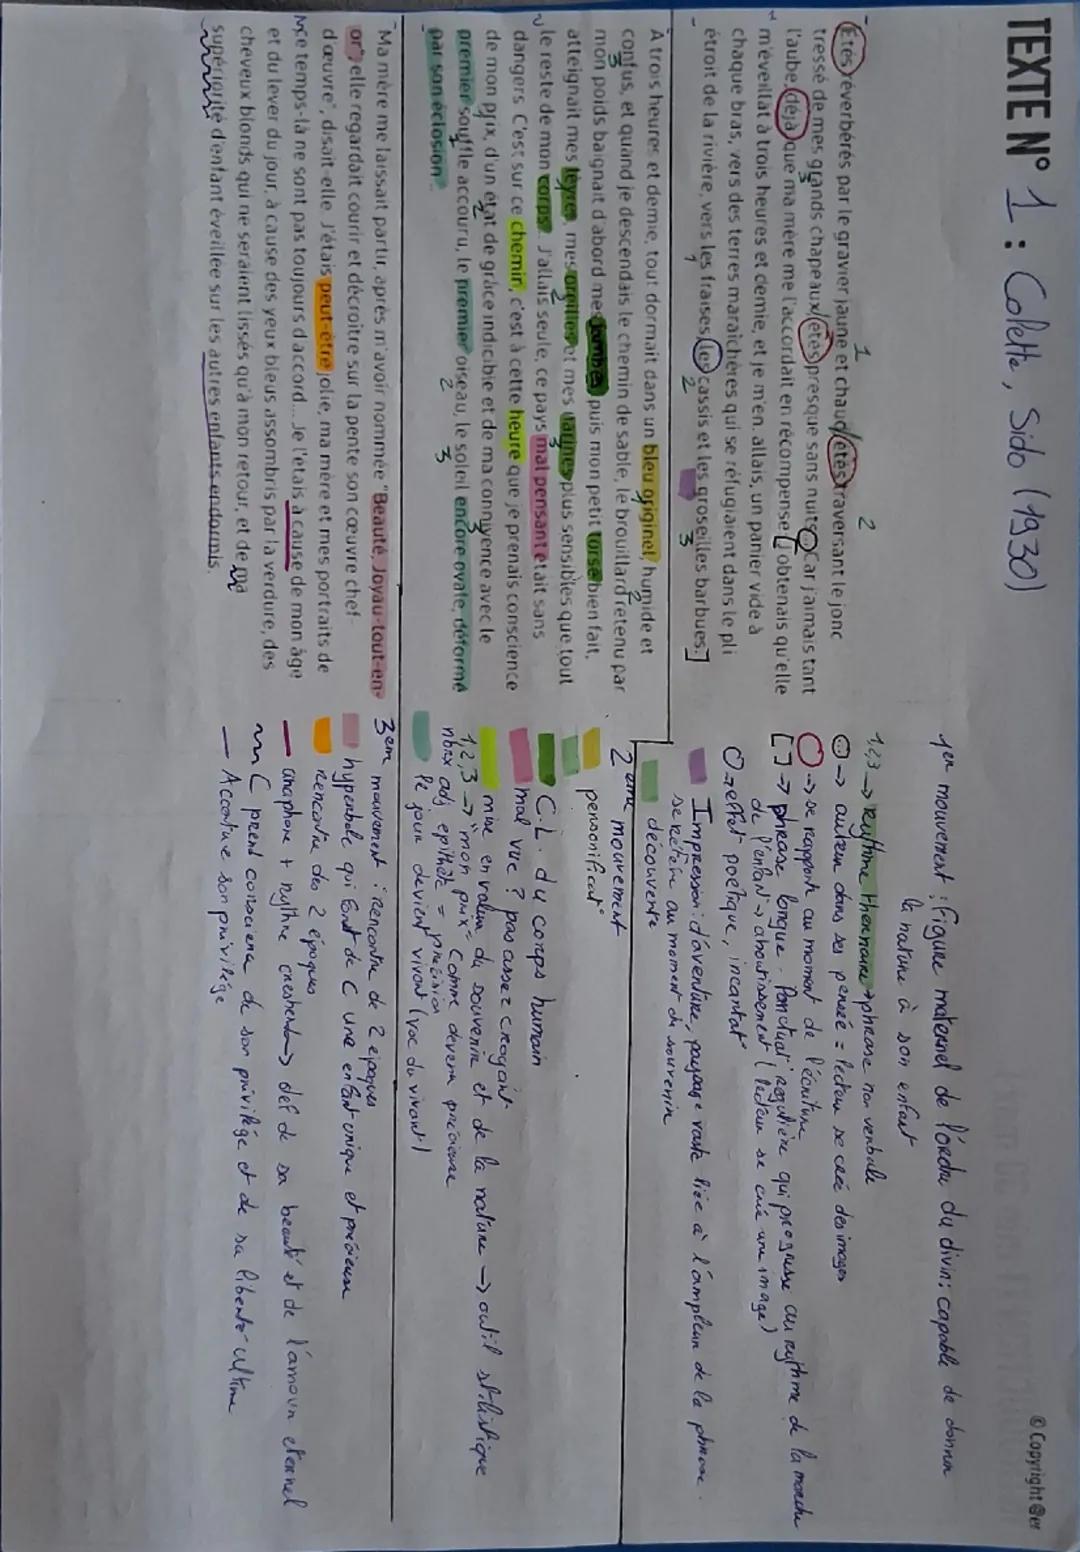 © Copyright @er
TEXTE N° 1 : Colette, Sido (1930)
Étés réverbérés par le gravier jaune et chaud, étés traversant le jonc
tressé de mes grands chapeaux, étés presque sans nuits... Car j'aimais tant
l'aube, déjà, que ma mère me l'accordait en récompense. [J'obtenais qu'elle
m'éveillât à trois heures et demie, et je m'en allais, un panier vide à
chaque bras, vers des terres maraîchères qui se réfugiaient dans le pli
étroit de la rivière, vers les fraises, les cassis et les groseilles barbues.]
À trois heures et demie, tout dormait dans un bleu originel, humide et
confus, et quand je descendais le chemin de sable, le brouillard retenu par
mon poids baignait d'abord mes jambes, puis mon petit torse bien fait,
atteignait mes lèvres, mes oreilles et mes narines plus sensibles que tout
le reste de mon corps. J'allais seule, ce pays mal pensant était sans
dangers. C'est sur ce chemin, c'est à cette heure que je prenais conscience
de mon prix, d'un état de grâce indicible et de ma connivence avec le
premier souffle accouru, le premier oiseau, le soleil encore ovale, déformé
par son éclosion...
Ma mère me laissait partir, après m'avoir nommée "Beauté, Joyau-tout-en-
or" elle regardait courir et décroître sur la pente son œuvre chef-
d'œuvre", disait-elle. J'étais peut-être jolie, ma mère et mes portraits de
ce temps-là ne sont pas toujours d'accord... Je l'étais à cause de mon âge
et du lever du jour, à cause des yeux bleus assombris par la verdure, des
cheveux blonds qui ne seraient lissés qu'à mon retour, et de ma
supériorité d'enfant éveillée sur les autres enfants endormis.
1er mouvement : figure maternel de l'ordre du divin : capable de donner
la nature à son enfant
1,2,3 → Rythme thernaire → phrase non verbale
→ auteur dans ses pensée = lecteur se crée des images
→ se rapporte au moment de l'écriture
[ ] → phrase longue. Ponctuat° régulière qui progresse au rythme de la marche
de l'enfant → aboutissement (lecteur se crée une image)
O → effet poétique, incantat°
Impression d'aventure, paysage vaste liée à l'ampleur de la phrase.
se réfère au moment du souvenir
découverte
2eme mouvement
personificat°
C.L. du corps humain
mal vue ? pas assez croyant
mise en valeur du souvenir et de la nature → outil stilistique
1,2,3 → "mon prix" = Comme devenu précieuse
nbrx adj épithète = précision
le jour devient vivant (voc du vivant)
3em mouvement : rencontre de 2 époques
hyperbole qui font de C une enfant unique et précieuse
rencontre des 2 époques
anaphore + rythme → def de sa beauté et de l'amour eternel
C prend conscience de son privilège et de sa liberté ultime
Accentue son privilège